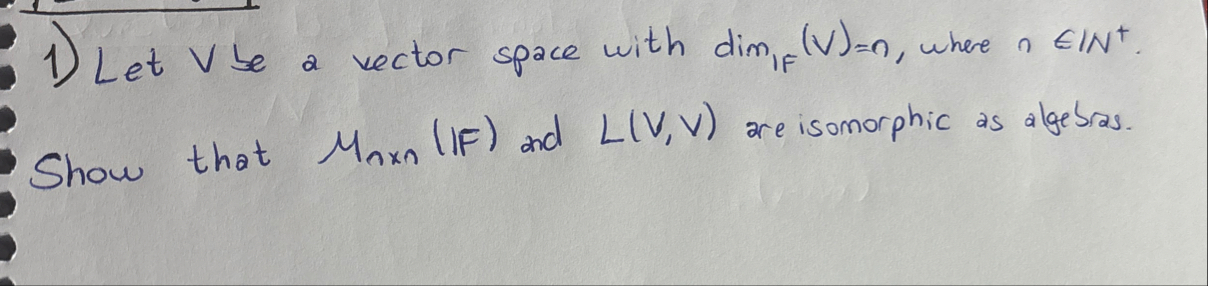 1) Let V be a vector space with dim_IF (V)=n, where n ∈ IN⁺.
Show that Mnxn (IF) and L(V,V) are isomorphic as algebras.